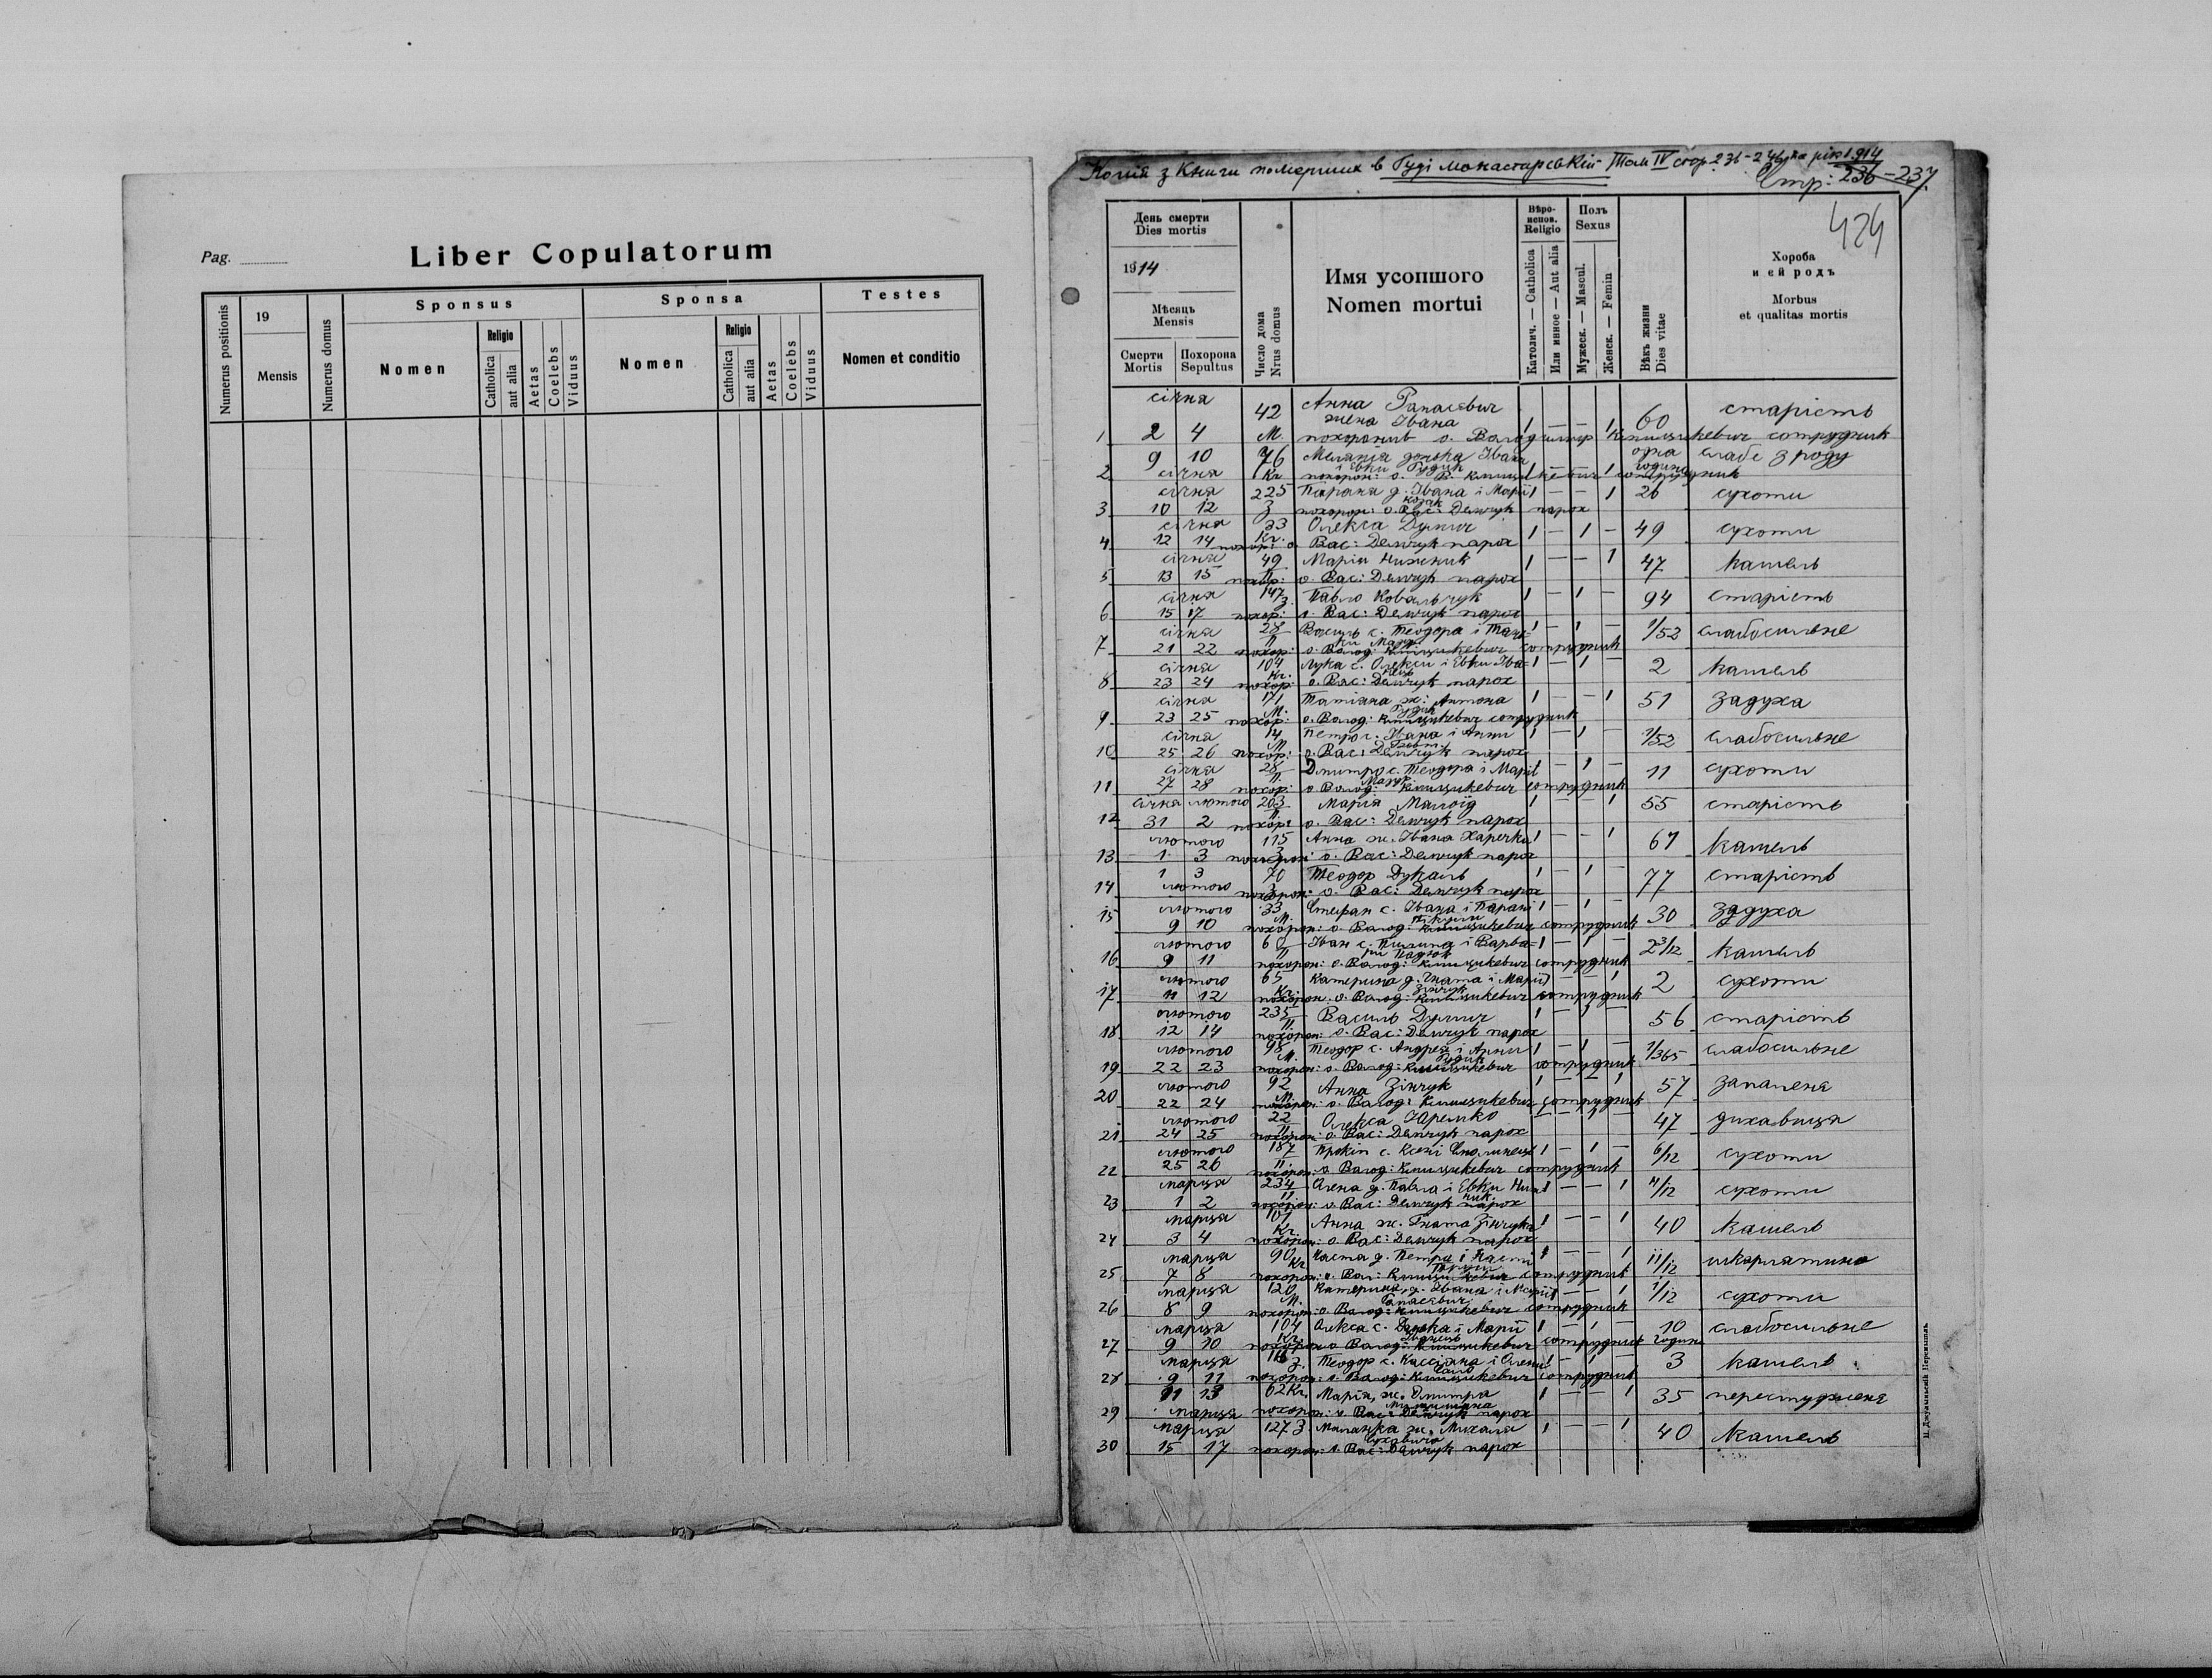 Pag.
Liber Copulatorum
Numerus positionis
19
Mensis
Numerus domus
Sponsus
Nomen
Religio
Catholica
aut alia
Aetas
Coelebs
Viduus
Sponsa
Nomen
Religio
Catholica
aut alia
Aetas
Coelebs
Viduus
Testes
Nomen et conditio
Копія з Книги померших в Гуді Монастирській Том IV стор. 236-246 на рік 1914
Стр: 236-237
424
День смерти
Dies mortis
1914
Мѣсяць
Mensis
Смерти
Mortis
Похорона
Sepultus
Число дома
Nrus domus
Имя усопшого
Nomen mortui
Вѣро-
испов.
Religio
Католич. — Catholica
Или инное — Aut alia
Полъ
Sexus
Мужеск. — Mascul.
Женск. — Femin
Вѣкъ жизни
Dies vitae
Хороба
и ей родъ
Morbus
et qualitas mortis
січня 42 Анна Панасевич старість
жена Івана 1 — — 1 60
1 2 4 М. похоронив о. Володимир сотрудник
9 10 76 Меланія донька Івана одна слабе з роду
2 січня Кр і Евки Гудик 1 — — 1 година
похорон: о. В. сотрудник
січня 225 Параня д. Івана і Марії 1 — — 1 26 сухоти
3 10 12 З похорон: о. Вас: Демчук парох
січня 33 Олекса Думич 1 — 1 — 49 сухоти
4 12 14 Кр. похор: о. Вас: Демчук парох
січня 49 Марія Нижник 1 — — 1 47 кашель
5 13 15 П. похор: о. Вас: Демчук парох
січня 147 Павло Ковальчук 1 — 1 — 94 старість
6 15 17 З. похор: о. Вас: Демчук парох
січня 28 Василь с. Теодора і 1 — 1 — 1/52 слабосильне
7 21 22 П похор: о. Волод: сотрудник
січня 104 Лука с. Олекси і Евки Іва= 1 — 1 — 2 кашель
8 23 24 Кр. похор: о. Вас: Демчук парох
січня 171 Татіяна ж: Антона 1 — — 1 51 задуха
Гудик
9 23 25 М. похор: о. Волод: сотрудник
січня 14 Петро с. Івана і Анни 1 — 1 — 1/52 слабосильне
10 25 26 М похор: о. Вас: Демчук парох
січня 28 Дмитро с. Теодора і Марії 1 — 1 — 11 сухоти
11 27 28 П. похор: о. Волод: сотрудник
січня лютого 203 Марія 1 — — 1 55 старість
12 31 2 П. похор: о. Вас: Демчук парох
лютого 115 Анна ж. Івана Харечка 1 — — 1 67 кашель
13 1 3 З похорон: о. Вас: Демчук парох
1 3 70 Теодор 1 — 1 — 77 старість
14 лютого З похорон: о. Вас: Демчук парох
лютого 33 Стефан с. Івана і Парані 1 — 1 — 30 задуха
15 9 10 М. похорон: о. Волод: сотрудник
лютого Іван с. Пилипа і Варва= 1 — 1 — 2 3/12 кашель
16 9 11 П похорон: о. Волод: сотрудник
лютого 65 Катерина д. Гната і Марії 1 — — 1 2 сухоти
Зінчук
17 11 12 Кр. похорон. о. Волод: сотрудник
лютого 235 Василь Думич 1 — 1 — 56 старість
18 12 14 П. похорон: о. Вас: Демчук парох
лютого 98 Теодор с. Андрея і Анни 1 — 1 — 1/365 слабосильне
Гудик
19 22 23 М. похорон: о. Волод: сотрудник
лютого 92 Анна Зінчук 1 — — 1 57 запаленя
20 22 24 М. похорон: о. Волод: сотрудник
лютого 22 Олекса Яремко 1 — 1 — 47 дихавиця
21 24 25 П. похорон: о. Вас: Демчук парох
лютого 187 Прокіп с. Ксені 1 — 1 — 6/12 сухоти
22 25 26 П. похорон: о. Волод: сотрудник
марця 234 Олена д. Павла і Евки Ниж= 1 — — 1 сухоти
ник
23 1 2 П похорон: о. Вас: Демчук парох
марця 101 Анна ж. Гната Зінчука 1 — — 1 40 кашель
24 3 4 Кр. похорон: о. Вас: Демчук парох
марця 90 Настя д. Петра і Насті 1 — — 1 11/12 шкарлятина
25 7 8 Кр похорон: о. Вол: сотрудник
марця 120 Катерина д. Івана і Марії 1 — — 1 1/12 сухоти
Панасевич
26 8 9 М. похорон: о. Волод: сотрудник
марця 104 Олекса с. Данька і Марії 1 — 1 — 10 слабосильне
Іванець
27 9 10 Кр. похорон о. Волод: сотрудник годин
марця Теодор с. Кассіяна і Олени 1 — 1 — 3 кашель
28 9 11 З. похорон: о. Волод: сотрудник
11 13 62 Кр. Марія ж. Дмитра 1 — — 1 35 перестудженя
29 марця похорон: о. Вас: Демчук парох
марця 127 З. Меланка ж. Михаила 1 — — 1 40 кашель
30 15 17 похорон: о. Вас: Демчук парох